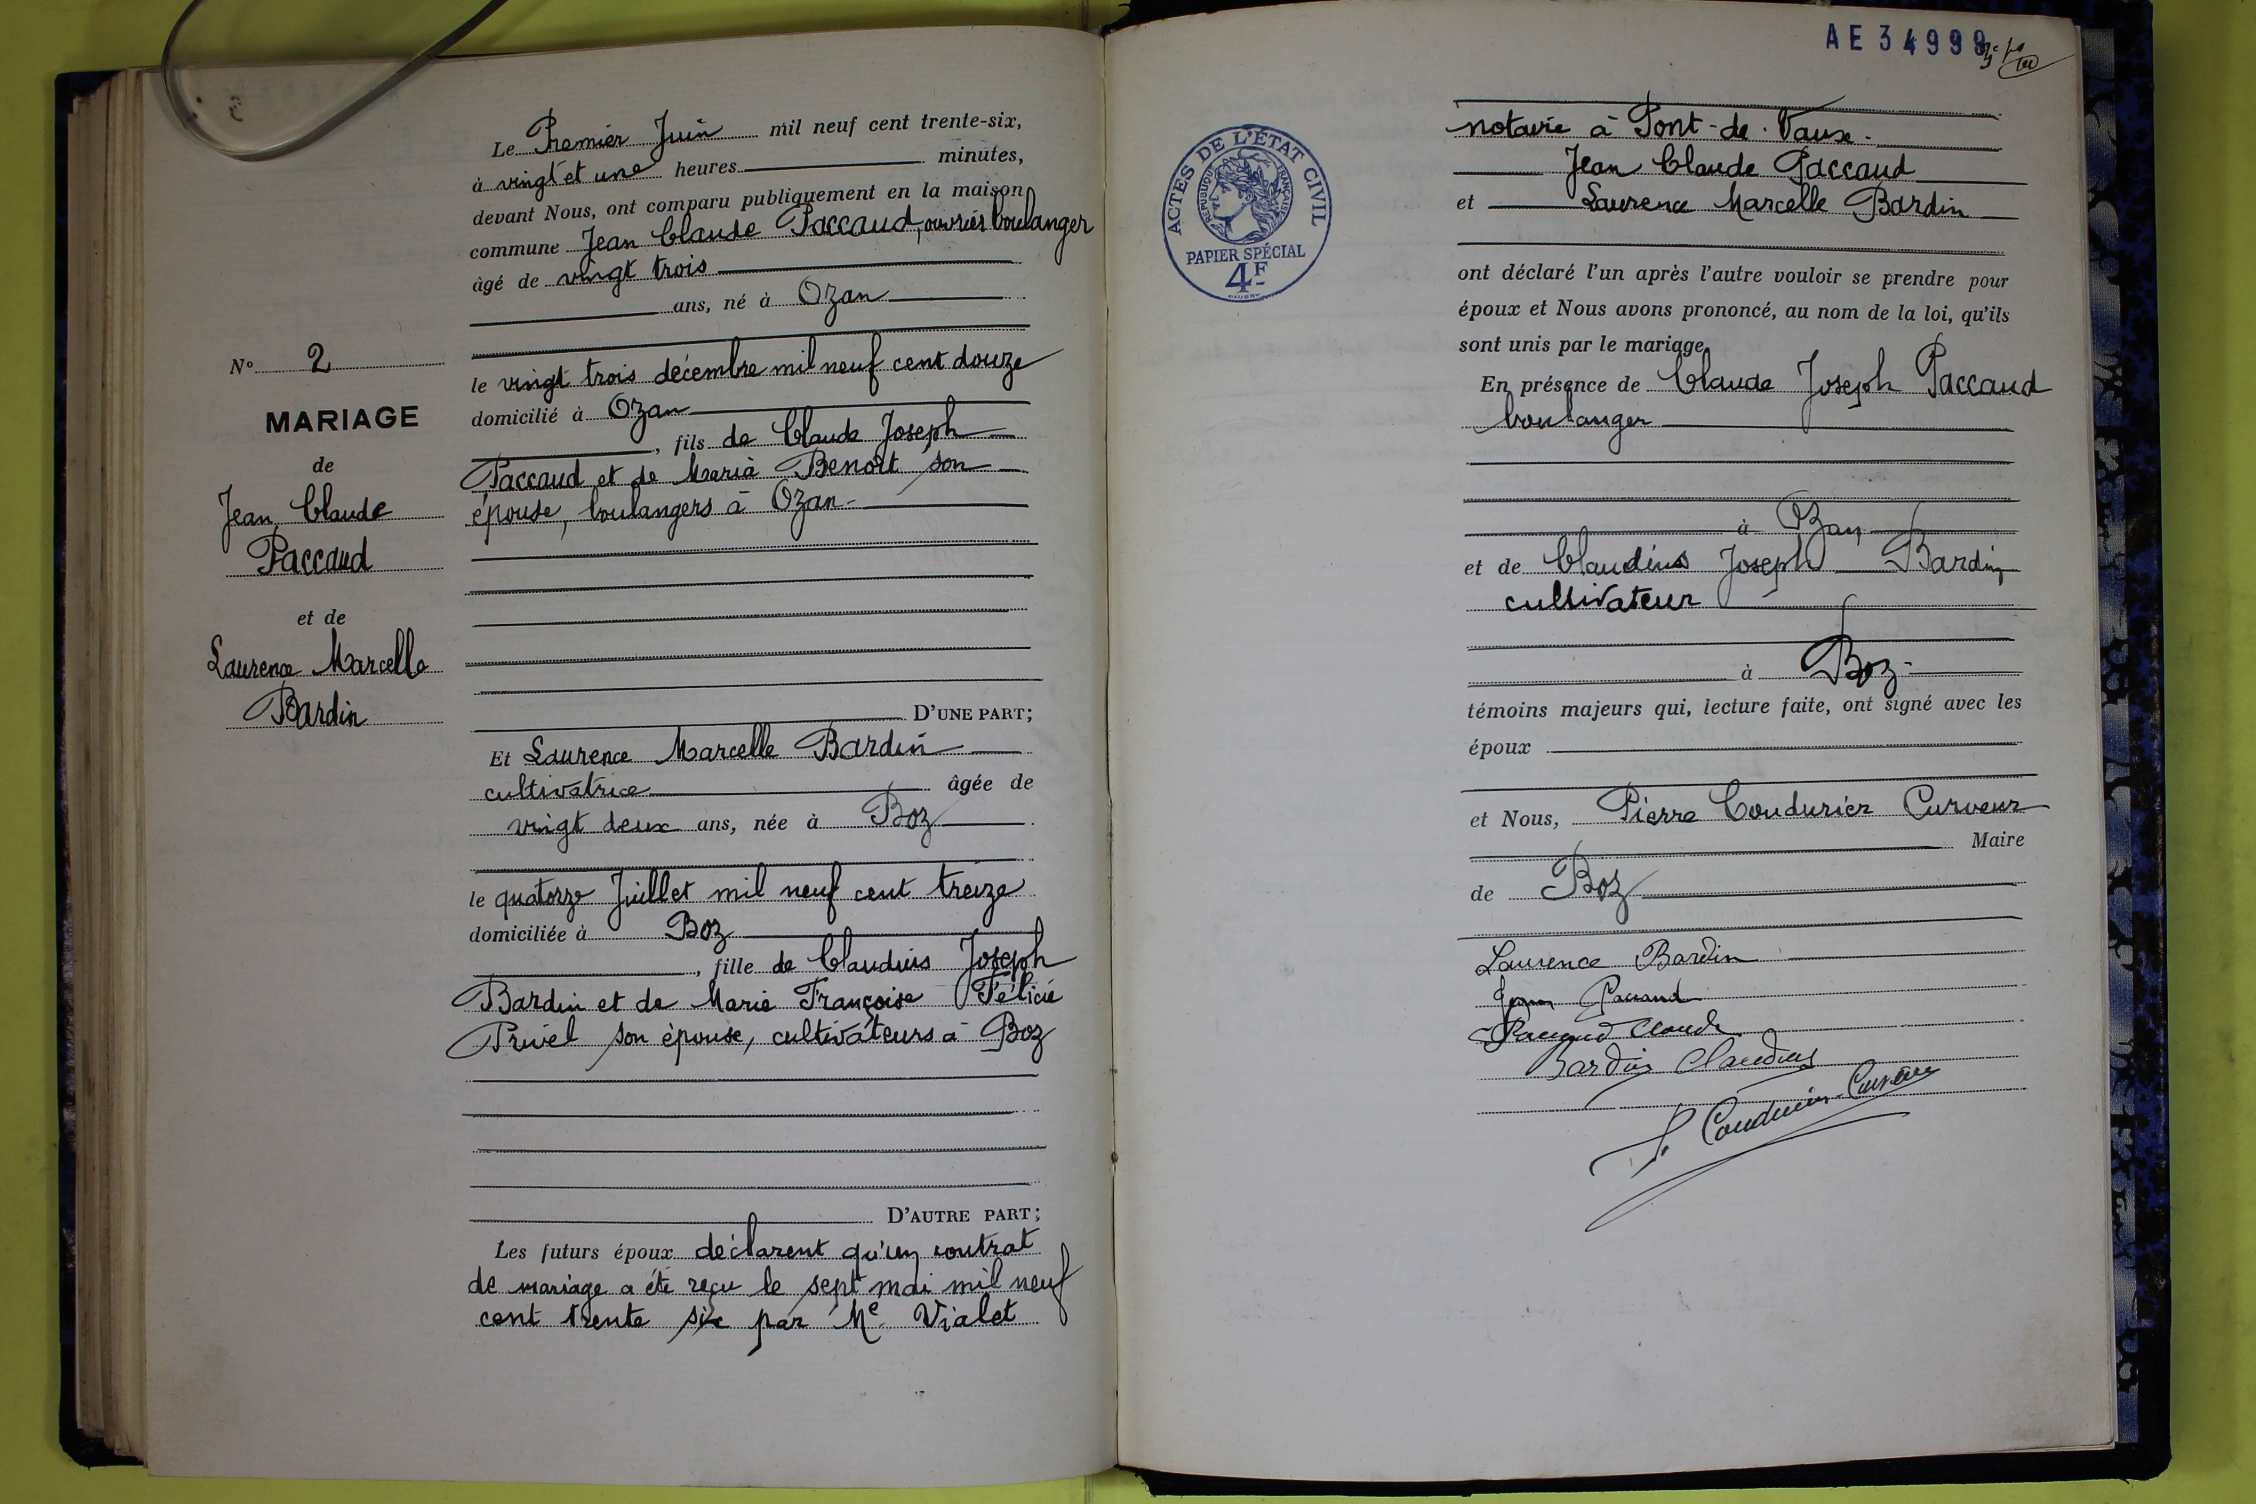 N° 2
MARIAGE
de
Jean Claude
Paccaud
et de
Laurence Marcelle
Bardin
Le Premier Juin mil neuf cent trente-six,
à vingt et une heures minutes,
devant Nous, ont comparu publiquement en la maison
commune Jean Claude Paccaud, ouvrier boulanger
âgé de vingt trois
ans, né à Ozan
le vingt trois décembre mil neuf cent douze
domicilié à Ozan
, fils de Claude Joseph
Paccaud et de Maria Benoît son
épouse, boulangers à Ozan
D'UNE PART;
Et Laurence Marcelle Bardin
cultivatrice âgée de
vingt deux ans, née à Boz
le quatorze Juillet mil neuf cent treize
domiciliée à Boz
, fille de Claudius Joseph
Bardin et de Marie Françoise Félicie
Privel son épouse, cultivateurs à Boz
D'AUTRE PART;
Les futurs époux déclarent qu'un contrat
de mariage a été reçu le sept mai mil neuf
cent trente six par Me Vialet
AE 34999
ACTES DE L'ÉTAT CIVIL
RÉPUBLIQUE FRANÇAISE
PAPIER SPÉCIAL
4F
notaire à Pont-de-Vaux.
Jean Claude Paccaud
et Laurence Marcelle Bardin
ont déclaré l'un après l'autre vouloir se prendre pour
époux et Nous avons prononcé, au nom de la loi, qu'ils
sont unis par le mariage
En présence de Claude Joseph Paccaud
boulanger
à Ozan
et de Claudius Joseph Bardin
cultivateur
à Boz
témoins majeurs qui, lecture faite, ont signé avec les
époux
et Nous, Pierre Coudurier Curveur
Maire
de Boz
Laurence Bardin
Paccaud
Paccaud Claude
Bardin Claudius
P. Coudurier-Curveur